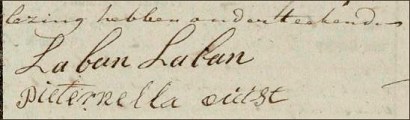 lezing hebben onderteekend
Laban Laban
pieternella ouist